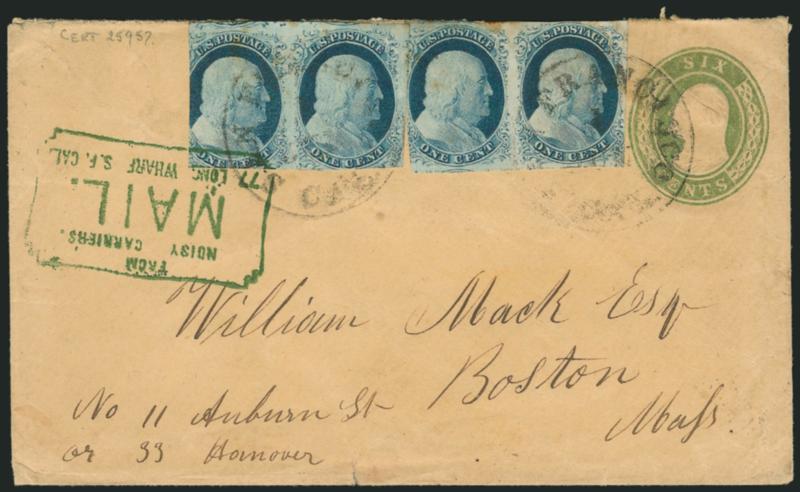 CERT 25957
U.S. POSTAGE
ONE CENT
U.S. POSTAGE
ONE CENT
U.S. POSTAGE
ONE CENT
U.S. POSTAGE
ONE CENT
SIX
CENTS
FRANCISCO
FROM
NOISY CARRIERS'
MAIL.
77 LONG WHARF S.F. CAL.
William Mack Esq
Boston
Mass.
No 11 Auburn St
or 33 Hanover